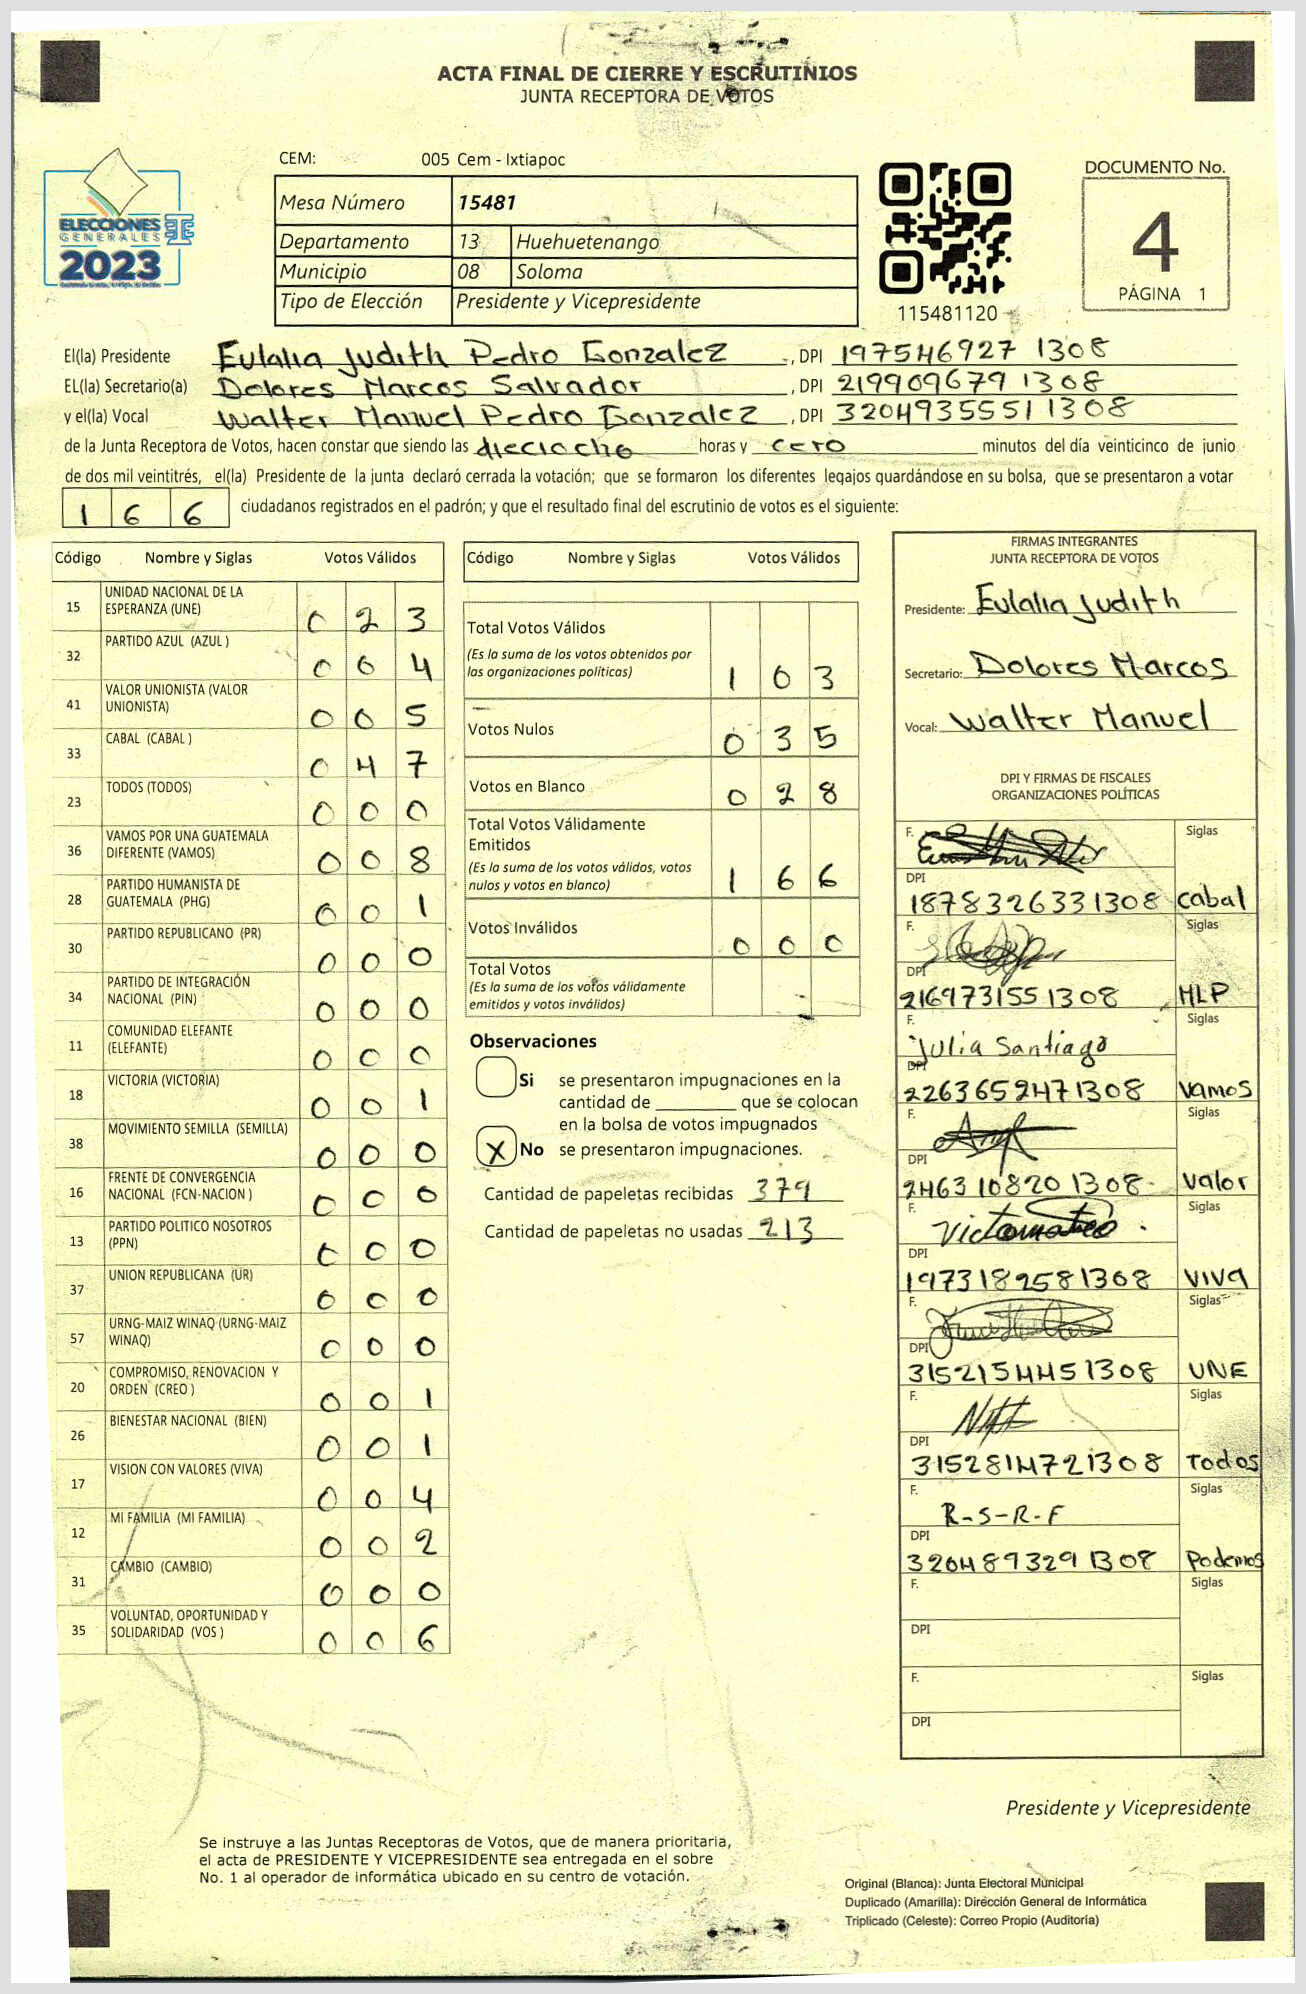 ACTA FINAL DE CIERRE Y ESCRUTINIOS
JUNTA RECEPTORA DE VOTOS
CEM: 005 Cem - Ixtiapoc
ELECCIONES
GENERALES
2023
Mesa Número 15481
Departamento 13 Huehuetenango
Municipio 08 Soloma
Tipo de Elección Presidente y Vicepresidente
115481120
DOCUMENTO No.
4
PÁGINA 1
El(la) Presidente Eulalia Judith Pedro Gonzalez, DPI 197546927 1308
EL(la) Secretario(a) Dolores Marcos Salvador, DPI 219909679 1308
y el(la) Vocal Walter Manuel Pedro Gonzalez, DPI 3204935551308
de la Junta Receptora de Votos, hacen constar que siendo las dieciocho horas y cero minutos del día veinticinco de junio
de dos mil veintitrés, el(la) Presidente de la junta declaró cerrada la votación; que se formaron los diferentes legajos guardándose en su bolsa, que se presentaron a votar
1 6 6 ciudadanos registrados en el padrón; y que el resultado final del escrutinio de votos es el siguiente:
Código Nombre y Siglas Votos Válidos
15 UNIDAD NACIONAL DE LA
ESPERANZA (UNE) 0 2 3
32 PARTIDO AZUL (AZUL ) 0 0 4
41 VALOR UNIONISTA (VALOR
UNIONISTA) 0 0 5
33 CABAL (CABAL ) 0 4 7
23 TODOS (TODOS) 0 0 0
36 VAMOS POR UNA GUATEMALA
DIFERENTE (VAMOS) 0 0 8
28 PARTIDO HUMANISTA DE
GUATEMALA (PHG) 0 0 1
30 PARTIDO REPUBLICANO (PR) 0 0 0
34 PARTIDO DE INTEGRACIÓN
NACIONAL (PIN) 0 0 0
11 COMUNIDAD ELEFANTE
(ELEFANTE) 0 0 0
18 VICTORIA (VICTORIA) 0 0 1
38 MOVIMIENTO SEMILLA (SEMILLA) 0 0 0
16 FRENTE DE CONVERGENCIA
NACIONAL (FCN-NACION ) 0 0 0
13 PARTIDO POLITICO NOSOTROS
(PPN) 0 0 0
37 UNION REPUBLICANA (UR) 0 0 0
57 URNG-MAIZ WINAQ (URNG-MAIZ
WINAQ) 0 0 0
20 COMPROMISO, RENOVACION Y
ORDEN (CREO ) 0 0 1
26 BIENESTAR NACIONAL (BIEN) 0 0 1
17 VISION CON VALORES (VIVA) 0 0 4
12 MI FAMILIA (MI FAMILIA) 0 0 2
31 CAMBIO (CAMBIO) 0 0 0
35 VOLUNTAD, OPORTUNIDAD Y
SOLIDARIDAD (VOS ) 0 0 6
Código Nombre y Siglas Votos Válidos
Total Votos Válidos
(Es la suma de los votos obtenidos por
las organizaciones políticas) 1 0 3
Votos Nulos 0 3 5
Votos en Blanco 0 2 8
Total Votos Válidamente
Emitidos
(Es la suma de los votos válidos, votos
nulos y votos en blanco) 1 6 6
Votos Inválidos 0 0 0
Total Votos
(Es la suma de los votos válidamente
emitidos y votos inválidos)
Observaciones
Si se presentaron impugnaciones en la
cantidad de ________ que se colocan
en la bolsa de votos impugnados
X No se presentaron impugnaciones.
Cantidad de papeletas recibidas 379
Cantidad de papeletas no usadas 213
FIRMAS INTEGRANTES
JUNTA RECEPTORA DE VOTOS
Presidente: Eulalia Judith
Secretario: Dolores Marcos
Vocal: Walter Manuel
DPI Y FIRMAS DE FISCALES
ORGANIZACIONES POLÍTICAS
F. Siglas
DPI
1878326331308 Cabal
F. Siglas
DPI
2169731551308 MLP
F. Siglas
Julia Santiago
DPI
2263652471308 Vamos
F. Siglas
DPI
2463108201308 Valor
F. Siglas
DPI
1973182581308 VIVA
F. Siglas
DPI
3152154451308 UNE
F. Siglas
DPI
3152814721308 Todos
F. Siglas
R-S-R-F
DPI
3204893291308 Podemos
F. Siglas
DPI
F. Siglas
DPI
Presidente y Vicepresidente
Se instruye a las Juntas Receptoras de Votos, que de manera prioritaria,
el acta de PRESIDENTE Y VICEPRESIDENTE sea entregada en el sobre
No. 1 al operador de informática ubicado en su centro de votación.
Original (Blanca): Junta Electoral Municipal
Duplicado (Amarilla): Dirección General de Informática
Triplicado (Celeste): Correo Propio (Auditoría)